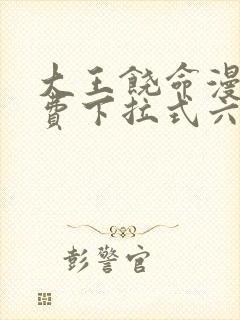 大王饶命漫
费下拉式六
彭警官